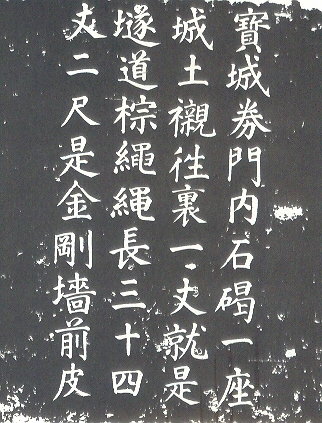 寶城券門内石碣一座
城土襯徃裏一丈就是
隧道棕繩繩長三十四
丈二尺是金剛墻前皮